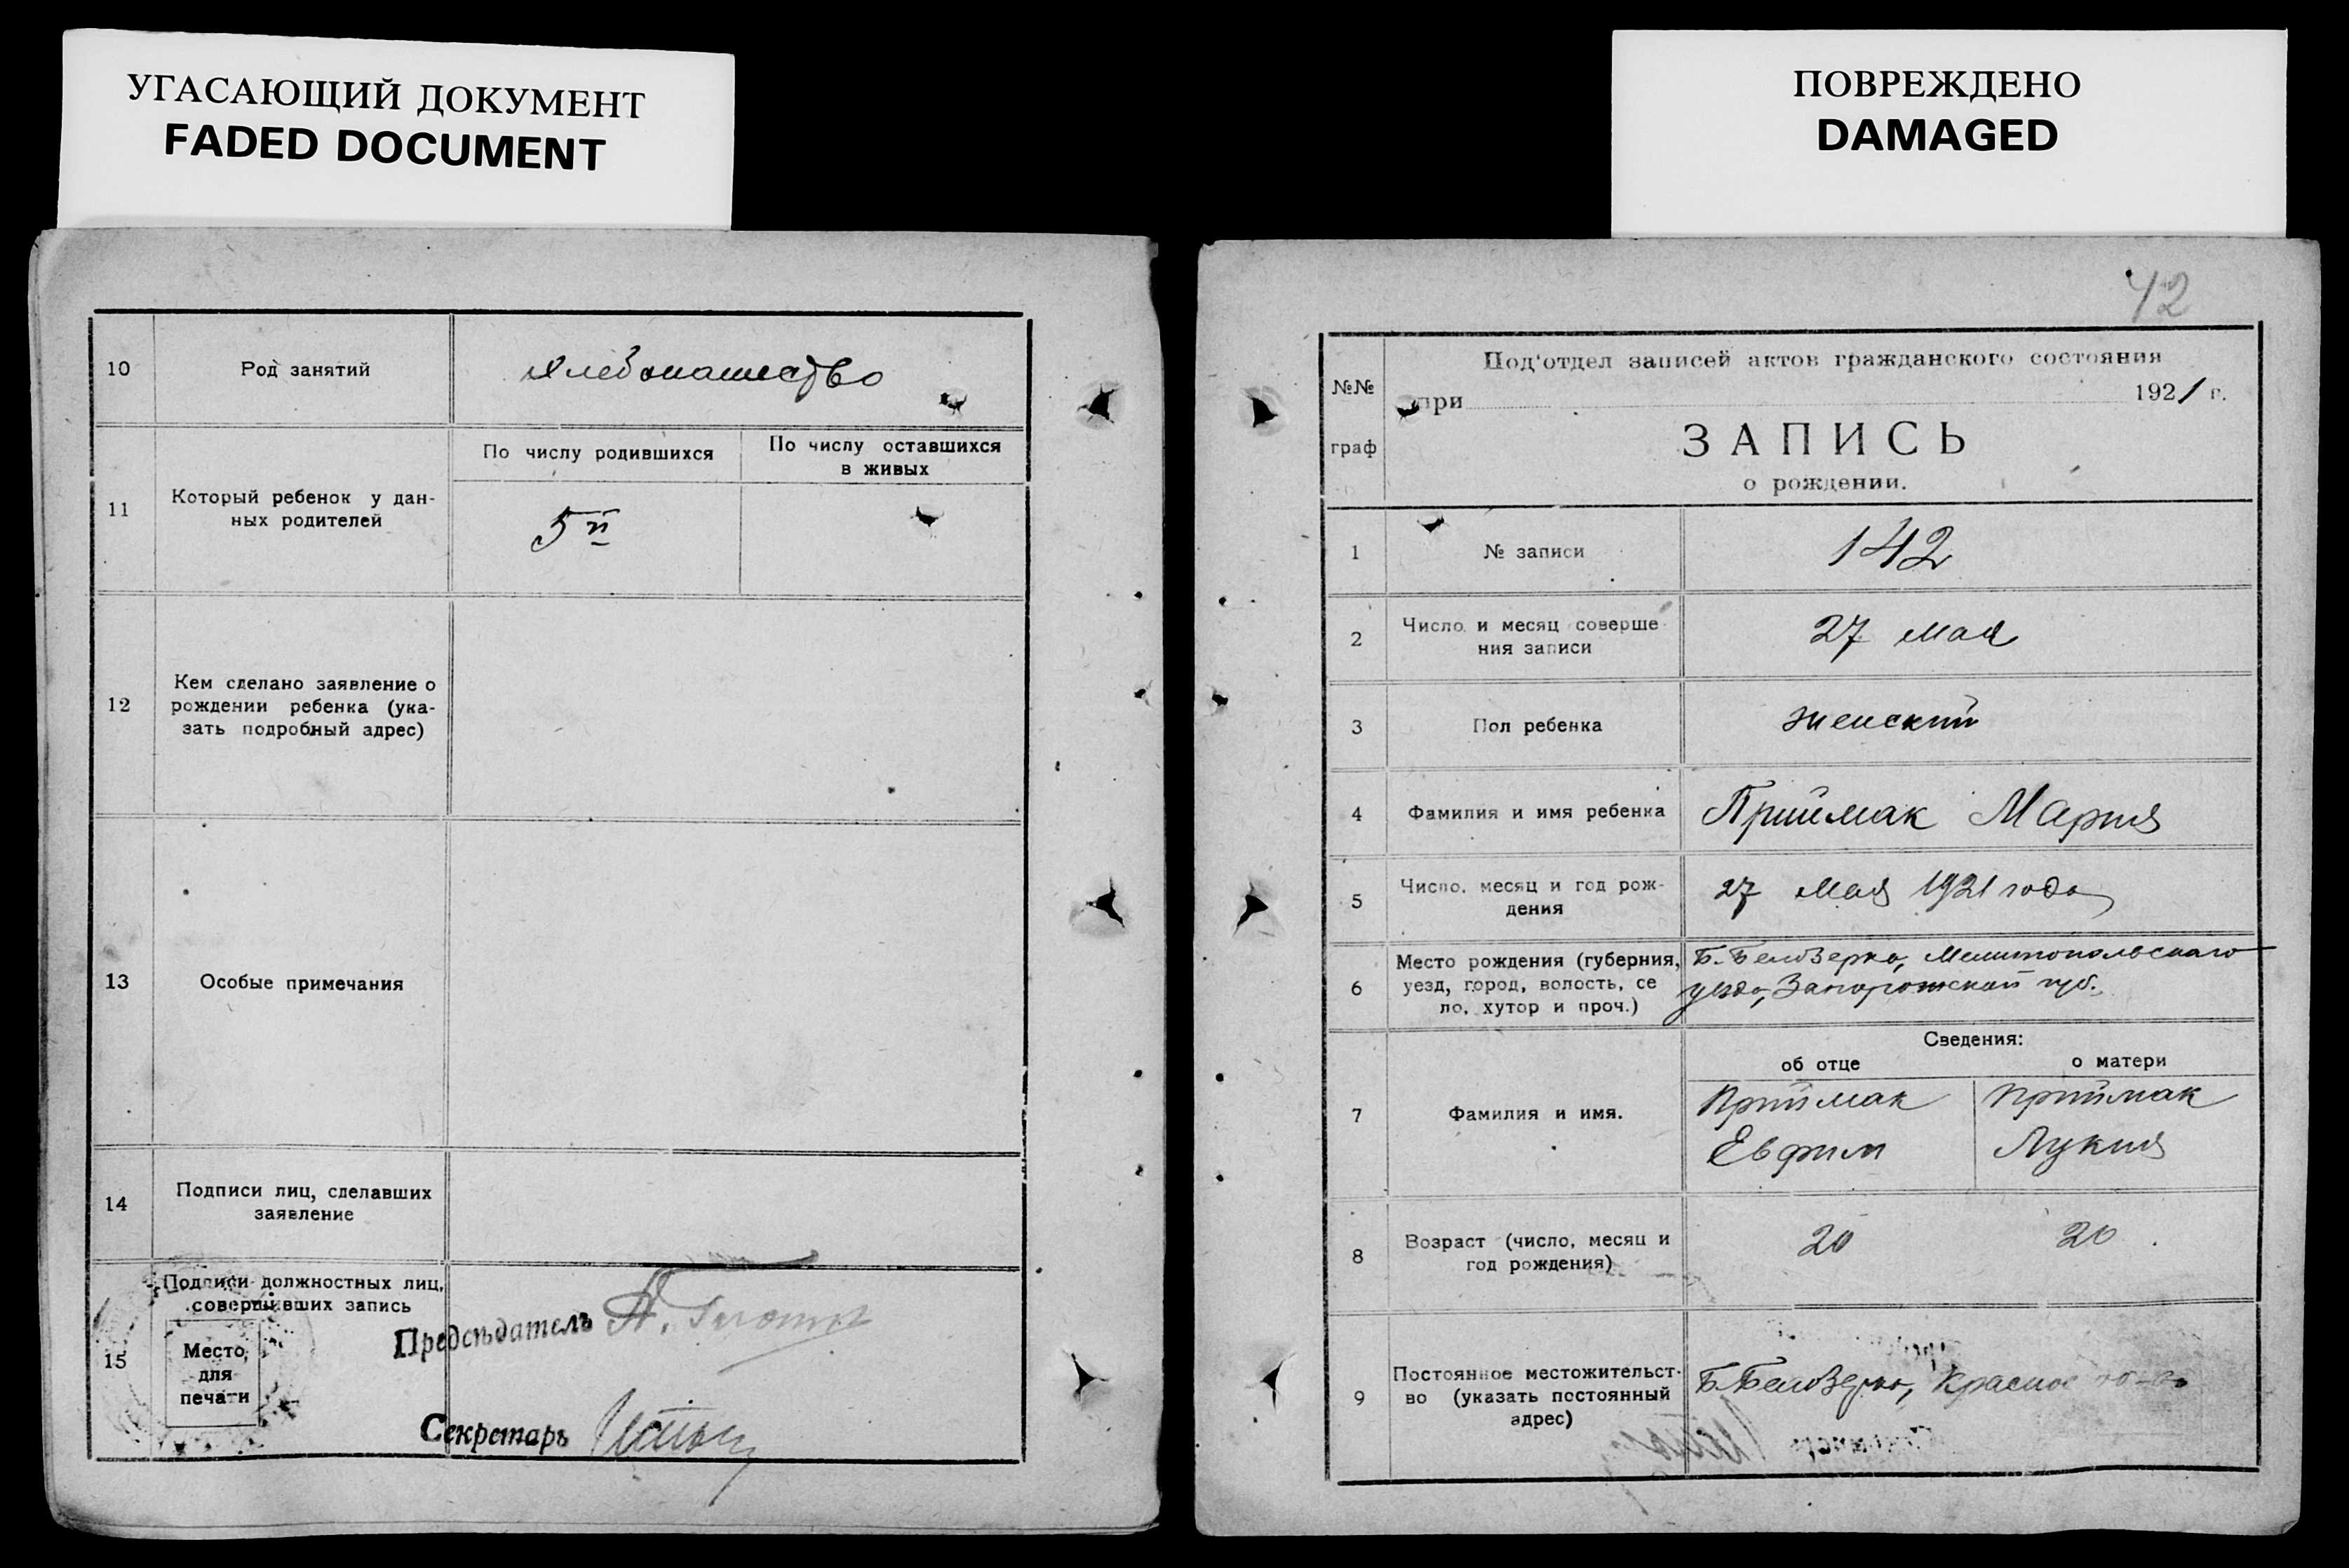 УГАСАЮЩИЙ ДОКУМЕНТ
FADED DOCUMENT
ПОВРЕЖДЕНО
DAMAGED
10
Род занятий
хлебопашество
11
Который ребенок у дан-
ных родителей
По числу родившихся
По числу оставшихся
в живых
5й
12
Кем сделано заявление о
рождении ребенка (ука-
зать подробный адрес)
13
Особые примечания
14
Подписи лиц, сделавших
заявление
15
Подписи должностных лиц,
совершивших запись
Место
для
печати
Предсѣдатель
Секретарь
42
№№
граф
Под'отдел записей актов гражданского состояния
при 1921 г.
ЗАПИСЬ
о рождении.
1
№ записи
142
2
Число и месяц соверше
ния записи
27 мая
3
Пол ребенка
женский
4
Фамилия и имя ребенка
Приймак Мария
5
Число, месяц и год рож-
дения
27 мая 1921 года
6
Место рождения (губерния,
уезд, город, волость, се
ло, хутор и проч.)
Б. Белозерка, Мелитопольскаго
уезда, Запорожской губ.
Сведения:
об отце
о матери
7
Фамилия и имя.
Приймак
Евфим
Приймак
Лукия
8
Возраст (число, месяц и
год рождения)
20
20
9
Постоянное местожительст-
во (указать постоянный
адрес)
Б. Белозерка,